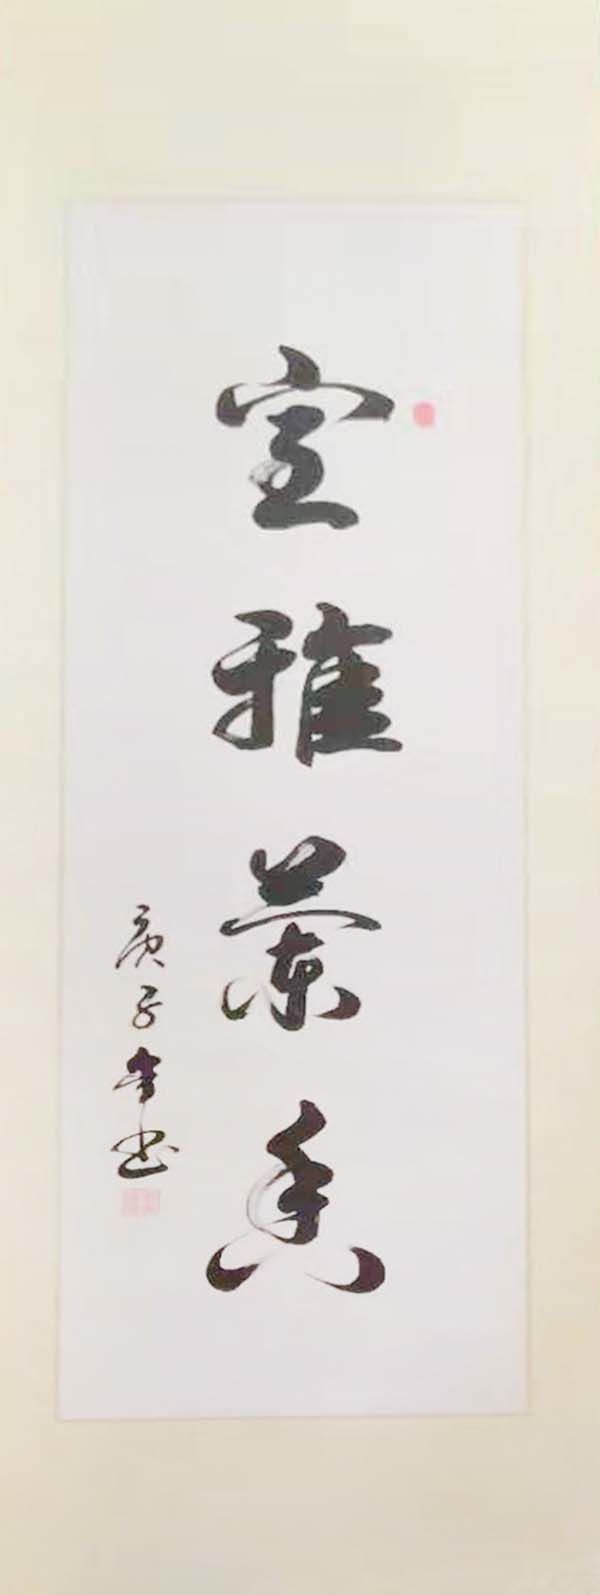 室雅兰香
庚子书